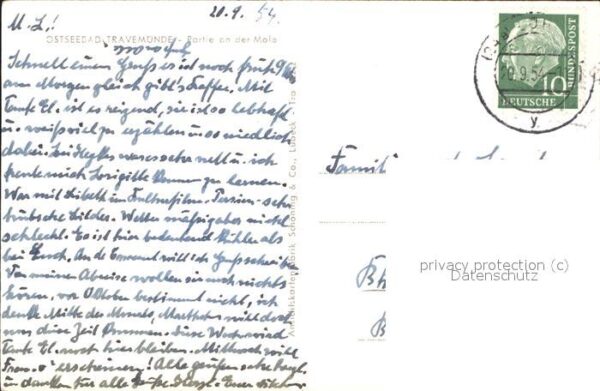 20.9.54.
M. L.!
OSTSEEBAD TRAVEMÜNDE - Partie an der Mole
Schnell einen Gruß es ist noch früh 9 Uhr
am Morgen gleich gibt's Kaffee. Mit
Tante El. ist es reizend, sie ist so lebhaft
u. weiß viel zu erzählen u. so niedlich
dabei. Bei war es sehr nett u. ich
freute mich kennen zu lernen.
War mit im Kulturfilm.
hübsche Bilder. Wetter mäßig aber nicht
schlecht. Es ist hier bedeutend kühler als
bei Euch. An will ich Gruß schreiben
Von meiner Abreise wollen sie noch nichts
hören, vor Oktober bestimmt nicht, ich
denke Mitte des Monats, will doch
um diese Zeit kommen. Diese Woche wird
Tante El. noch hier bleiben. Mittwoch will
Frau erscheinen! Alle grüßen sehr herzl.
u. danken für alle Grüße. Eure
Ansichtskartenfabrik Schöning & Co., Lübeck
Famili
Bh
B
20.9.54
y
10
DEUTSCHE
BUNDESPOST
privacy protection (c)
Datenschutz